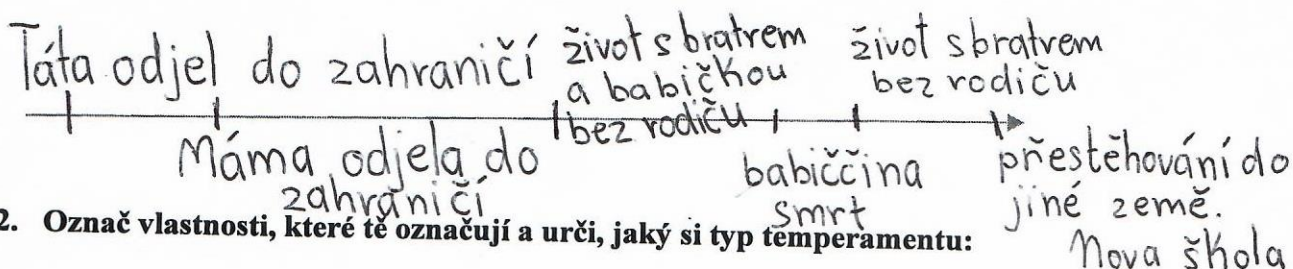 Táta odjel do zahraničí
život s bratrem
a babičkou
bez rodičů
život s bratrem
bez rodičů
Máma odjela do
zahraničí
babiččina
smrt
přestěhování do
jiné země.
Nova škola
2. Označ vlastnosti, které tě označují a urči, jaký si typ temperamentu: